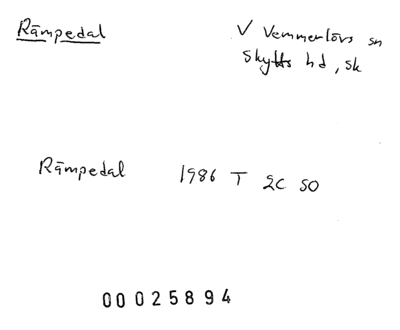 Råmpedal
V Vemmerlövs sn
Skytts hd, sk
Råmpedal 1986 T 2C SO
00025894